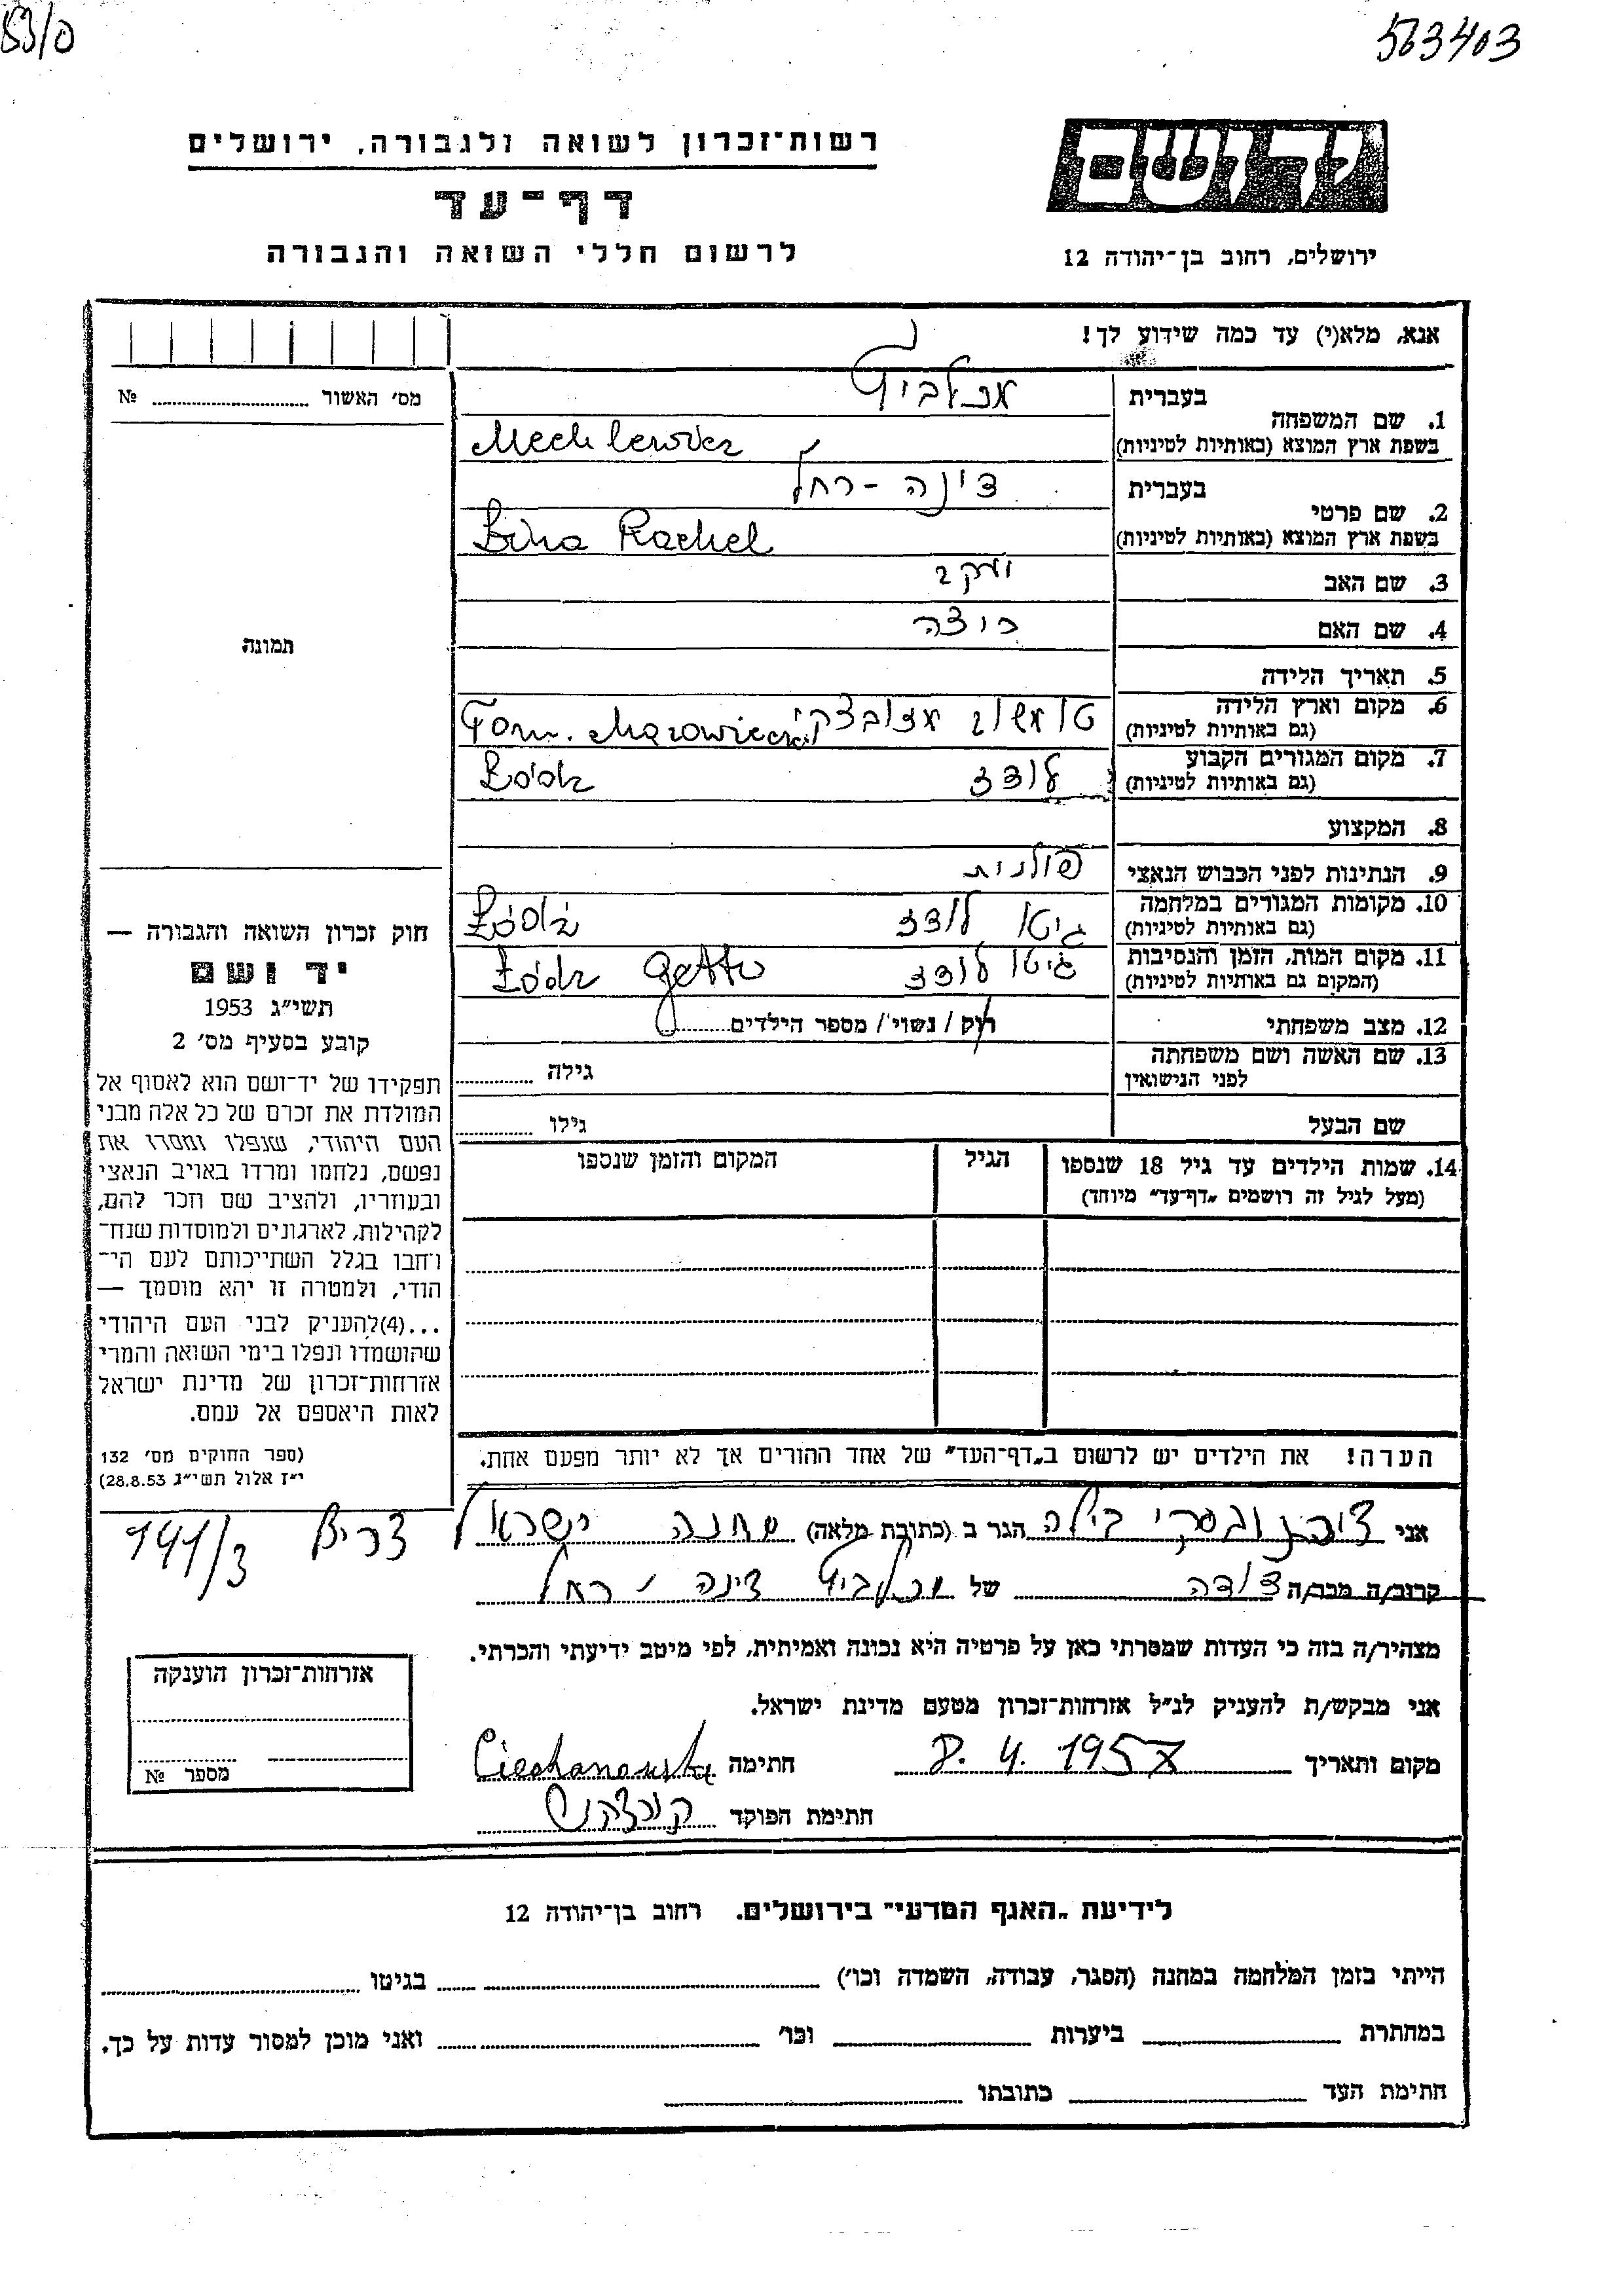 53/0
563403
יד ושם
רשות־זכרון לשואה ולגבורה, ירושלים
דף־עד
לרשום חללי השואה והגבורה
ירושלים, רחוב בן־יהודה 12
אנא, מלא(י) עד כמה שידוע לך!
מס׳ האשור № 
1. שם המשפחה
בעברית
בשפת ארץ המוצא (באותיות לטיניות)
Mechlewicz
2. שם פרטי
בעברית דינה - רחל
בשפת ארץ המוצא (באותיות לטיניות) Dina Rachel
3. שם האב
4. שם האם
5. תאריך הלידה
6. מקום וארץ הלידה
(גם באותיות לטיניות)
Tom. Mazowiecki
7. מקום המגורים הקבוע
(גם באותיות לטיניות)
לודז Łódz
8. המקצוע
9. הנתינות לפני הכבוש הנאצי פולנית
10. מקומות המגורים במלחמה
(גם באותיות לטיניות)
גיטו לודז Łódź
11. מקום המות, הזמן והנסיבות
(המקום גם באותיות לטיניות)
גיטו לודז Łódz getto
12. מצב משפחתי רוק / נשוי / מספר הילדים
13. שם האשה ושם משפחתה
לפני הנישואין
גילה
שם הבעל גילו
14. שמות הילדים עד גיל 18 שנספו
(מעל לגיל זה רושמים „דף־עד״ מיוחד)
הגיל
המקום והזמן שנספו
הערה! את הילדים יש לרשום ב„דף־העד״ של אחד ההורים אך לא יותר מפעם אחת.
תמונה
חוק זכרון השואה והגבורה —
יד ושם
תשי״ג 1953
קובע בסעיף מס׳ 2
תפקידו של יד־ושם הוא לאסוף אל
המולדת את זכרם של כל אלה מבני
העם היהודי, שנפלו ומסרו את
נפשם, נלחמו ומרדו באויב הנאצי
ובעוזריו, ולהציב שם וזכר להם,
לקהילות, לארגונים ולמוסדות שנח־
רחבו בגלל השתייכותם לעם הי־
הודי, ולמטרה זו יהא מוסמך —
...(4)להעניק לבני העם היהודי
שהושמדו ונפלו בימי השואה והמרי
אזרחות־זכרון של מדינת ישראל
לאות היאספם אל עמם.
(ספר החוקים מס׳ 132
י״ז אלול תשי״ג 28.8.53)
אני הגר ב (כתובת מלאה) מחנה ישראל צריף 141/3
קרוב/ה מכר/ה דודה של דינה, רחל
מצהיר/ה בזה כי העדות שמסרתי כאן על פרטיה היא נכונה ואמיתית, לפי מיטב ידיעתי והכרתי.
אני מבקש/ת להעניק לנ״ל אזרחות־זכרון מטעם מדינת ישראל.
מקום ותאריך 8. 4. 1957 חתימה Ciechanowska
חתימת הפוקד
אזרחות־זכרון הוענקה
מספר №
לידיעת „האגף המדעי״ בירושלים. רחוב בן־יהודה 12
הייתי בזמן המלחמה במחנה (הסגר, עבודה, השמדה וכו׳) בגיטו
במחתרת ביערות וכו׳ ואני מוכן למסור עדות על כך.
חתימת העד כתובתו